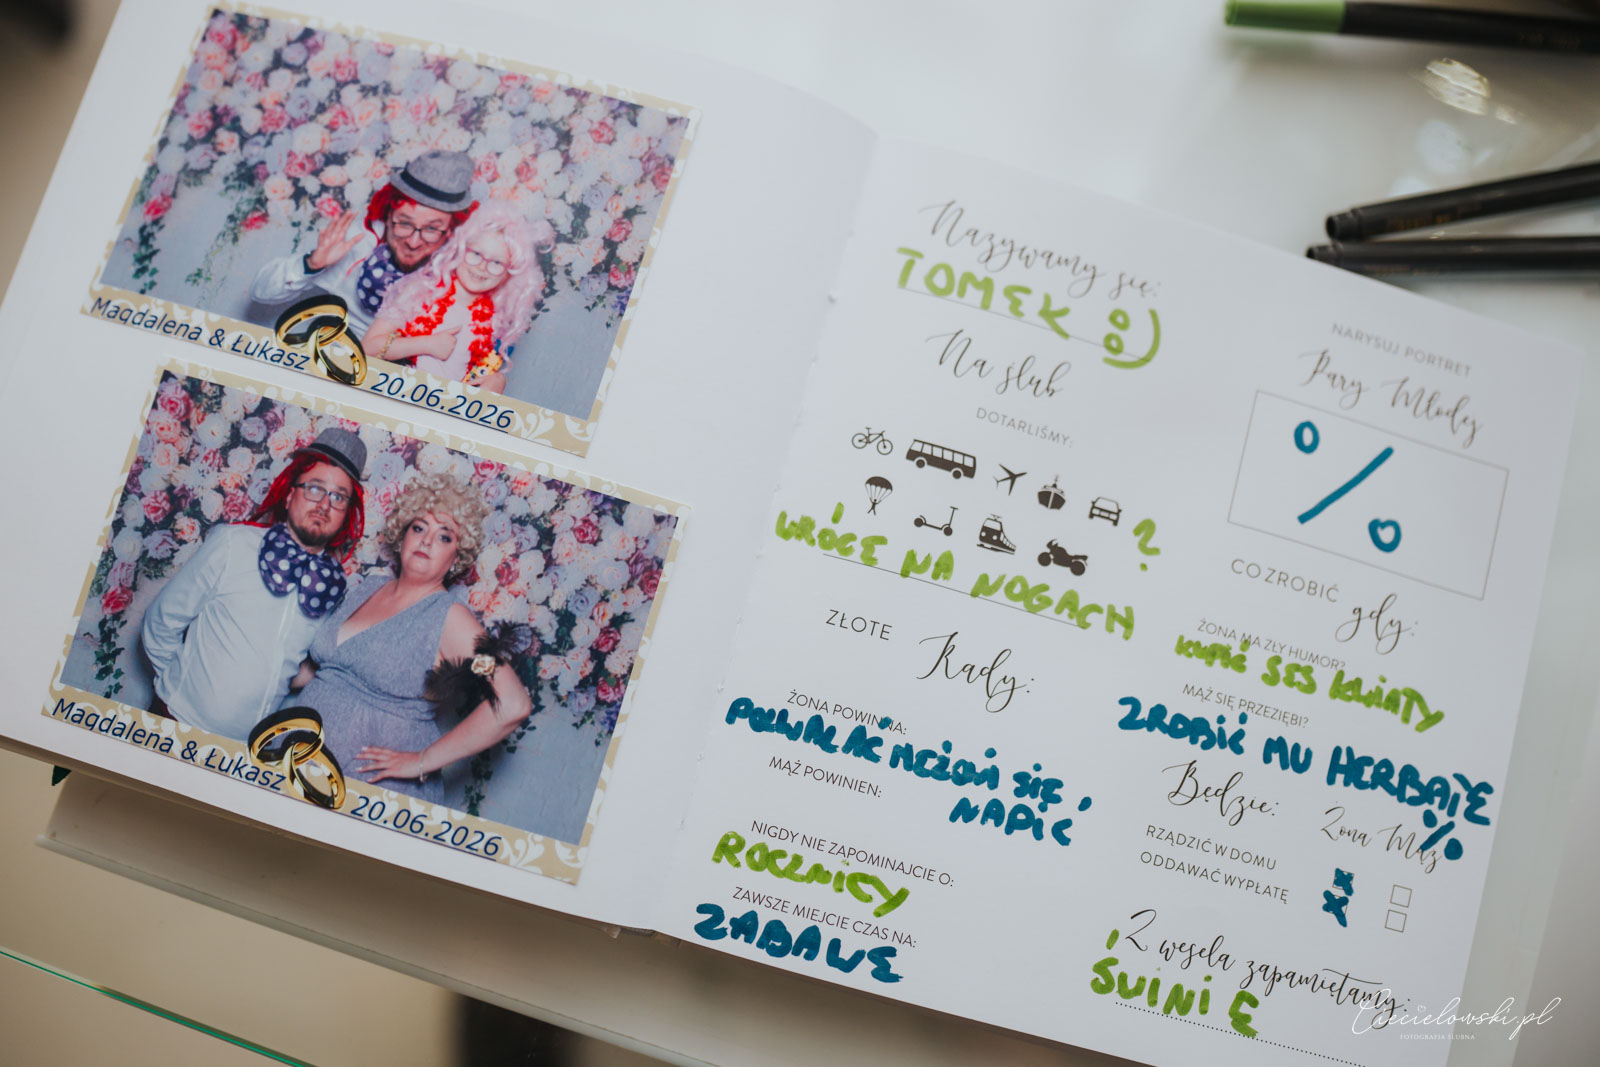 Magdalena & Łukasz
20.06.2026
Magdalena & Łukasz
20.06.2026
Nazywamy się:
TOMEK
Na ślub
DOTARLIŚMY:
?
WRÓCE NA NOGACH
ZŁOTE Rady:
ŻONA POWINNA:
POZWALAC MĘŻOWI SIĘ
NAPIĆ
MĄŻ POWINIEN:
NIGDY NIE ZAPOMINAJCIE O:
ROCZNICY
ZAWSZE MIEJCIE CZAS NA:
ZABAWĘ
NARYSUJ PORTRET
Pary Młody
%
CO ZROBIĆ gdy:
ŻONA MA ZŁY HUMOR?
KUPIĆ SES KWIATY
MĄŻ SIĘ PRZEZIĘBI?
ZROBIĆ MU HERBATĘ
%
Będzie:
Żona Mąż
RZĄDZIĆ W DOMU
ODDAWAĆ WYPŁATĘ
Z wesela zapamiętamy:
ŚWINIĘ
Ciecielowski.pl
FOTOGRAFIA ŚLUBNA